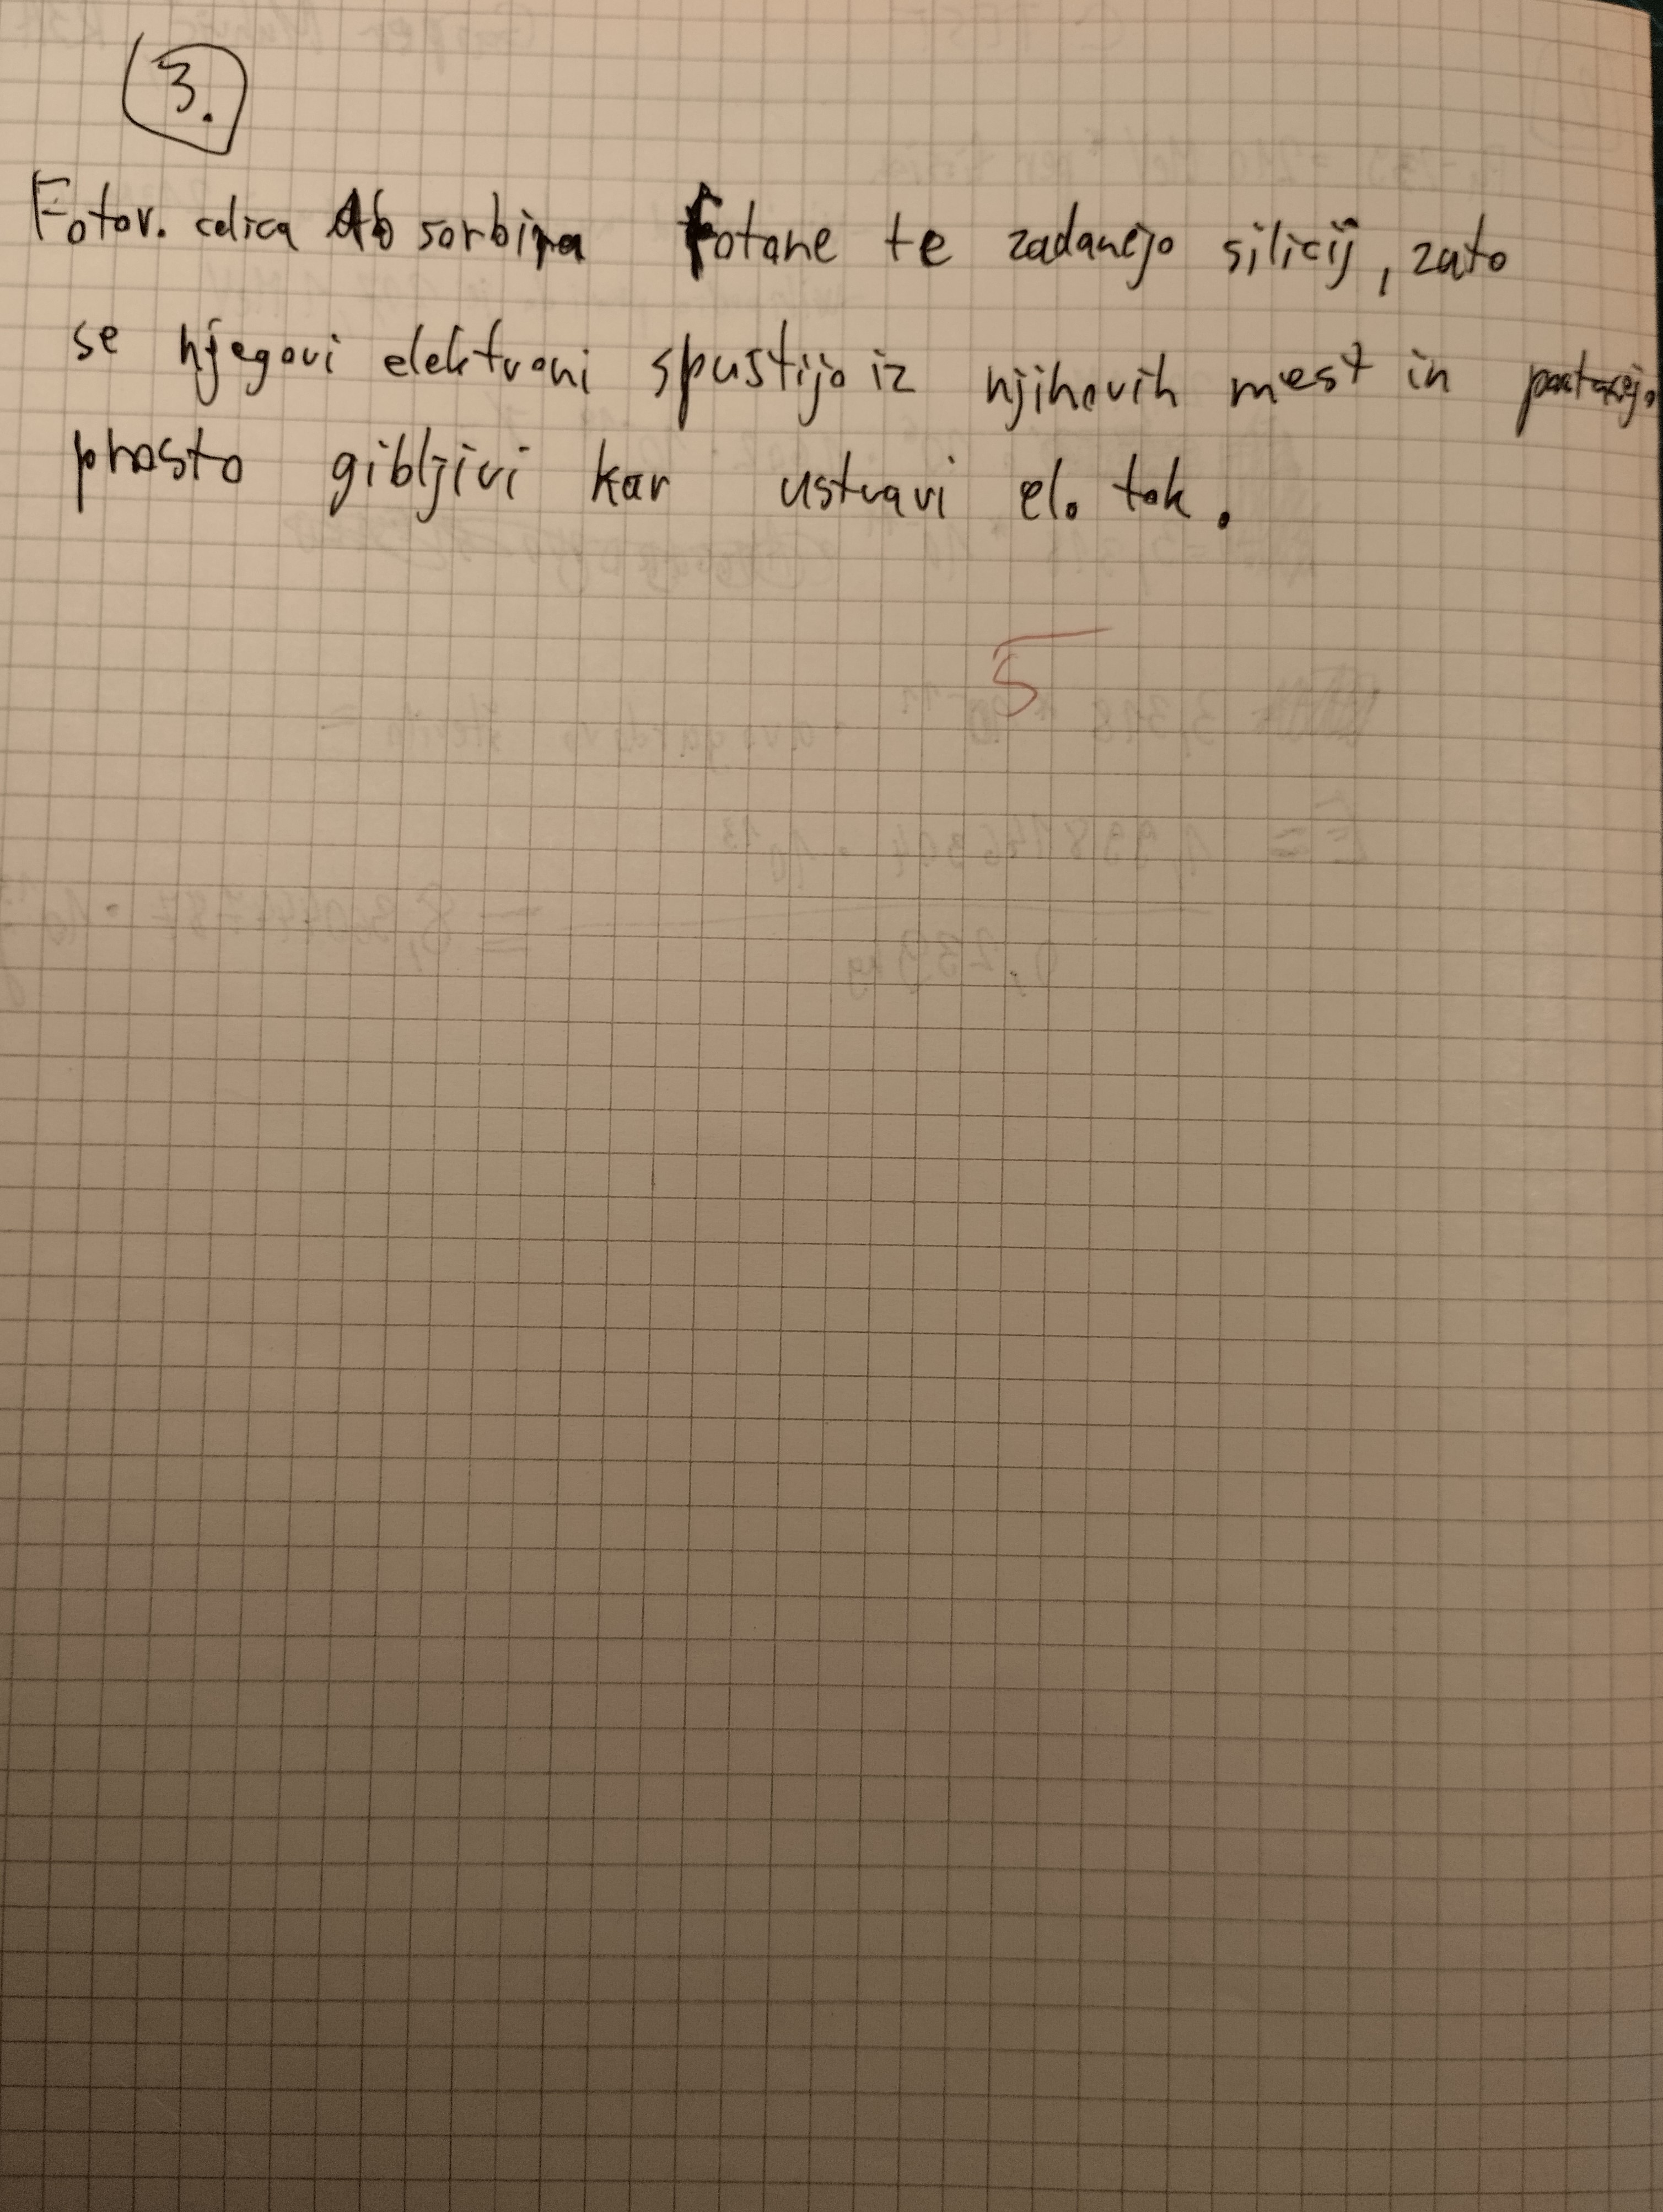 3.
Fotov. celica Absorbira fotone te zadanejo silicij, zato
se njegovi elektroni spustijo iz njihovih mest in
prosto gibljivi kar ustvari el. tok.
5